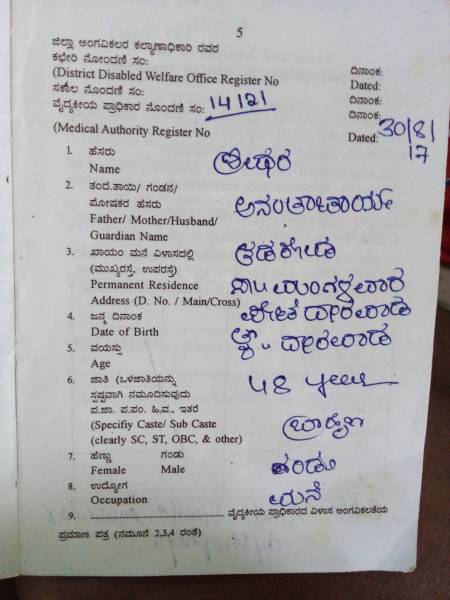 5
ಜಿಲ್ಲಾ ಅಂಗವಿಕಲರ ಕಲ್ಯಾಣಾಧಿಕಾರಿ ರವರ
ಕಛೇರಿ ನೋಂದಣಿ ಸಂ: ದಿನಾಂಕ:
(District Disabled Welfare Office Register No Dated:
ಸಕಾಲ ನೊಂದಣಿ ಸಂ: ದಿನಾಂಕ:
ವೈದ್ಯಕೀಯ ಪ್ರಾಧಿಕಾರ ನೊಂದಣಿ ಸಂ: 14/21 ದಿನಾಂಕ:
(Medical Authority Register No Dated: 30/8/17
1. ಹೆಸರು
Name ಶ್ರೀಧರ
2. ತಂದೆ.ತಾಯಿ/ ಗಂಡನ/
ಪೋಷಕರ ಹೆಸರು
Father/ Mother/Husband/
Guardian Name
3. ಖಾಯಂ ಮನೆ ವಿಳಾಸದಲ್ಲಿ
(ಮುಖ್ಯರಸ್ತೆ, ಉಪರಸ್ತೆ)
Permanent Residence ಮಂಗಳವಾರ
Address (D. No. / Main/Cross) ಪೇಠ ಧಾರವಾಡ
4. ಜನ್ಮ ದಿನಾಂಕ
Date of Birth ಧಾರವಾಡ
5. ವಯಸ್ಸು
Age 48
6. ಜಾತಿ (ಒಳಜಾತಿಯನ್ನು
ಸ್ಪಷ್ಟವಾಗಿ ನಮೂದಿಸುವುದು
ಪ.ಜಾ. ಪ.ಪಂ. ಹಿ.ವ., ಇತರೆ
(Specifiy Caste/ Sub Caste ಬ್ರಾಹ್ಮಣ
(clearly SC, ST, OBC, & other)
7. ಹೆಣ್ಣು ಗಂಡು
Female Male ಗಂಡು
8. ಉದ್ಯೋಗ
Occupation ಮನೆ
9. ........................................ ವೈದ್ಯಕೀಯ ಪ್ರಾಧಿಕಾರದ ವಿಳಾಸ ಅಂಗವಿಕಲತೆಯ
ಪ್ರಮಾಣ ಪತ್ರ (ನಮೂನೆ 2,3,4 ರಂತೆ)